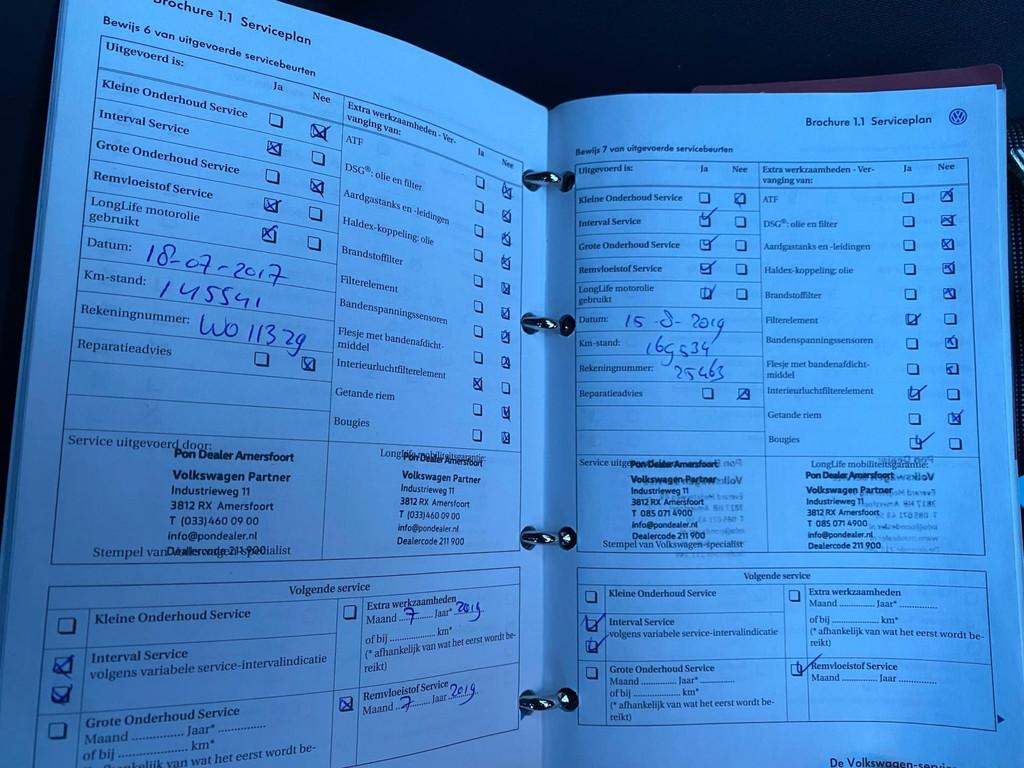 Brochure 1.1 Serviceplan
Bewijs 6 van uitgevoerde servicebeurten
Uitgevoerd is:
Ja
Nee
Kleine Onderhoud Service
Interval Service
Grote Onderhoud Service
Remvloeistof Service
LongLife motorolie
gebruikt
Datum: 18-07-2017
Km-stand: 145541
Rekeningnummer: WO 11329
Reparatieadvies
Extra werkzaamheden - Ver-
vanging van:
Ja
Nee
ATF
DSG®: olie en filter
Aardgastanks en -leidingen
Haldex-koppeling: olie
Brandstoffilter
Filterelement
Bandenspanningssensoren
Flesje met bandenafdicht-
middel
Interieurluchtfilterelement
Getande riem
Bougies
Service uitgevoerd door:
Pon Dealer Amersfoort
Volkswagen Partner
Industrieweg 11
3812 RX Amersfoort
T (033)460 09 00
info@pondealer.nl
Dealercode 211 900
Stempel van Volkswagen-specialist
LongLife mobiliteitsgarantie:
Pon Dealer Amersfoort
Volkswagen Partner
Industrieweg 11
3812 RX Amersfoort
T (033)460 09 00
info@pondealer.nl
Dealercode 211 900
Volgende service
Kleine Onderhoud Service
Interval Service
volgens variabele service-intervalindicatie
Grote Onderhoud Service
Maand .............. Jaar* ..............
of bij .............. km*
(* afhankelijk van wat het eerst wordt be-
Extra werkzaamheden
Maand ..7.. Jaar* 2019
of bij .............. km*
(* afhankelijk van wat het eerst wordt be-
reikt)
Remvloeistof Service
Maand ..7.. Jaar 2019
Brochure 1.1 Serviceplan
Bewijs 7 van uitgevoerde servicebeurten
Uitgevoerd is:
Ja
Nee
Kleine Onderhoud Service
Interval Service
Grote Onderhoud Service
Remvloeistof Service
LongLife motorolie
gebruikt
Datum: 15-8-2019
Km-stand: 169534
Rekeningnummer: 25463
Reparatieadvies
Extra werkzaamheden - Ver-
vanging van:
Ja
Nee
ATF
DSG®: olie en filter
Aardgastanks en -leidingen
Haldex-koppeling: olie
Brandstoffilter
Filterelement
Bandenspanningssensoren
Flesje met bandenafdicht-
middel
Interieurluchtfilterelement
Getande riem
Bougies
Pon Dealer Amersfoort
Volkswagen Partner
Industrieweg 11
3812 RX Amersfoort
T 085 071 4900
info@pondealer.nl
Dealercode 211 900
Stempel van Volkswagen-specialist
LongLife mobiliteitsgarantie:
Pon Dealer Amersfoort
Volkswagen Partner
Industrieweg 11
3812 RX Amersfoort
T 085 071 4900
info@pondealer.nl
Dealercode 211 900
Volgende service
Kleine Onderhoud Service
Interval Service
volgens variabele service-intervalindicatie
Grote Onderhoud Service
Maand .............. Jaar* ..............
of bij .............. km*
(* afhankelijk van wat het eerst wordt be-
reikt)
Extra werkzaamheden
Maand .............. Jaar* ..............
of bij .............. km*
(* afhankelijk van wat het eerst wordt be-
reikt)
Remvloeistof Service
Maand .............. Jaar ..............
De Volkswagen-service